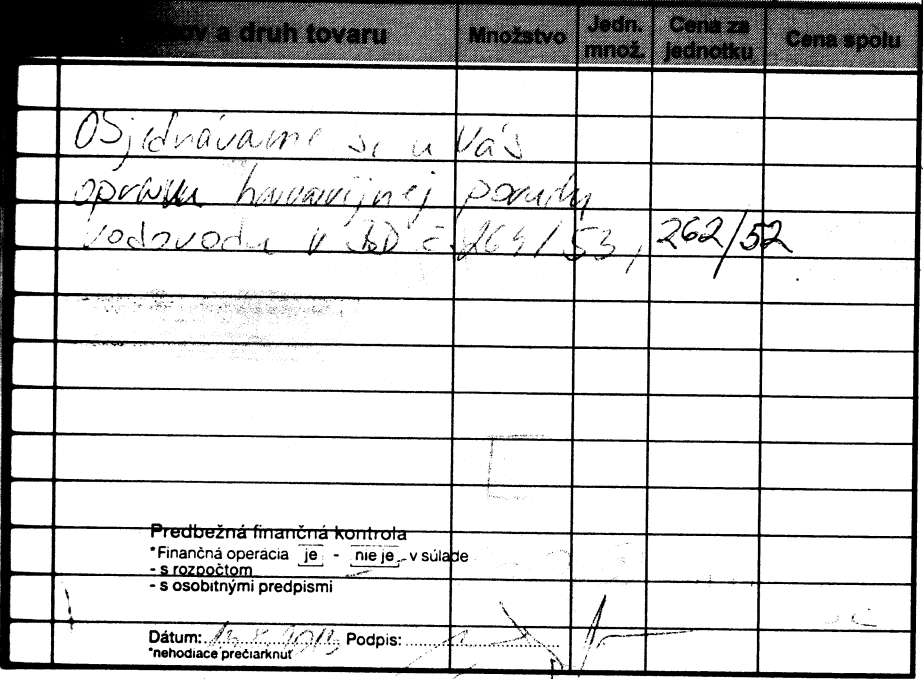 ov a druh tovaru Množstvo Jedn. množ. Cena za jednotku Cena spolu
Objednávame si u Vás
opravu havarijnej poruchy
vodovodu v BD č. 264/53, 262/52
Predbežná finančná kontrola
*Finančná operácia je - nie je v súlade
- s rozpočtom
- s osobitnými predpismi
Dátum: Podpis:
*nehodiace prečiarknuť